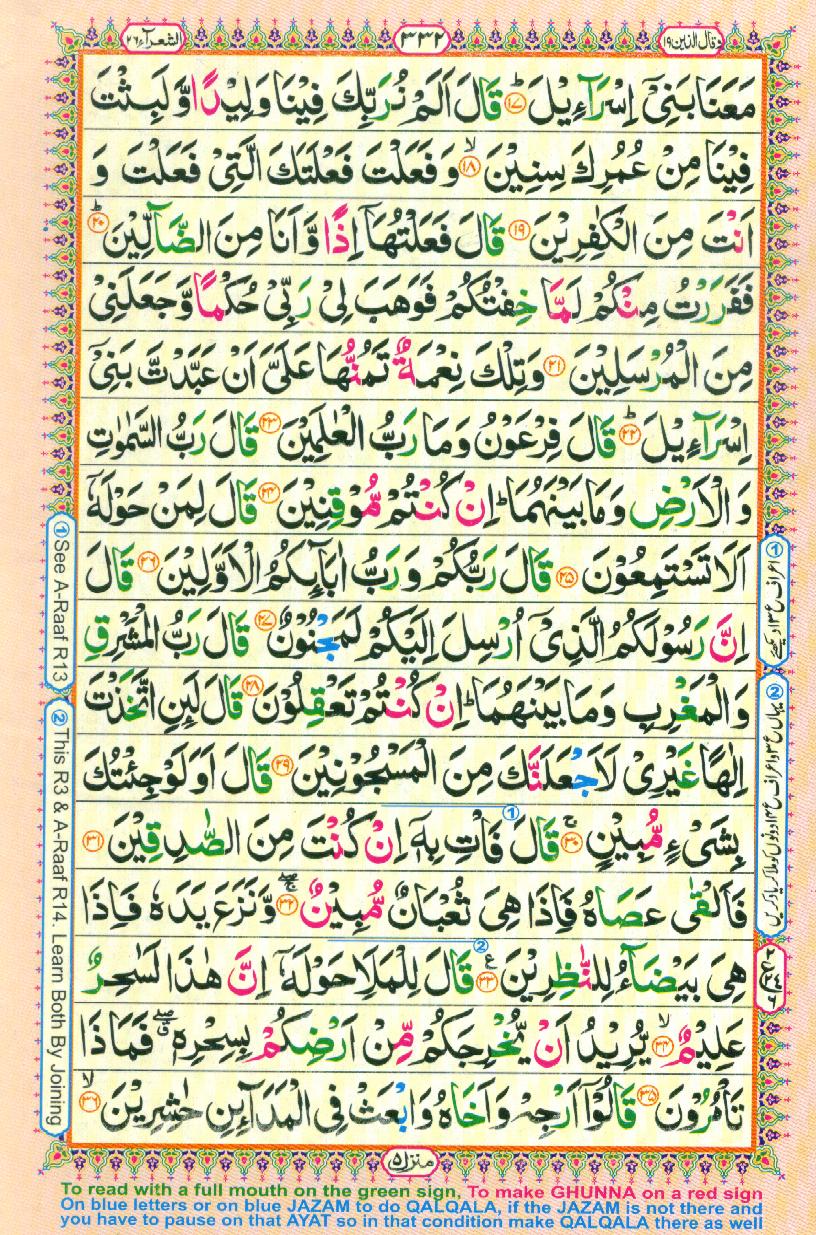 الشعرآء٢٦
٣٣٢
وقال الذين١٩
مَعَنَا بَنِىْۤ اِسْرَآءِيْلَ ؕ‏﴿۱۷﴾ قَالَ اَلَمْ نُرَبِّكَ فِيْنَا وَلِيْدًا وَّلَبِثْتَ
فِيْنَا مِنْ عُمُرِكَ سِنِيْنَ ۙ‏﴿۱۸﴾ وَ فَعَلْتَ فَعْلَتَكَ الَّتِىْ فَعَلْتَ وَ
اَنْتَ مِنَ الْكٰفِرِيْنَ‏﴿۱۹﴾ قَالَ فَعَلْتُهَاۤ اِذًا وَّاَنَا مِنَ الضَّآلِّيْنَ ؕ‏﴿۲۰﴾
فَفَرَرْتُ مِنْكُمْ لَمَّا خِفْتُكُمْ فَوَهَبَ لِىْ رَبِّىْ حُكْمًا وَّجَعَلَنِىْ
مِنَ الْمُرْسَلِيْنَ‏﴿۲۱﴾ وَتِلْكَ نِعْمَةٌ تَمُنُّهَا عَلَىَّ اَنْ عَبَّدْتَّ بَنِىْۤ
اِسْرَآءِيْلَ ؕ‏﴿۲۲﴾ قَالَ فِرْعَوْنُ وَمَا رَبُّ الْعٰلَمِيْنَ‏﴿۲۳﴾ قَالَ رَبُّ السَّمٰوٰتِ
وَ الْاَرْضِ وَمَا بَيْنَهُمَا ؕ اِنْ كُنْتُمْ مُّوْقِنِيْنَ‏﴿۲۴﴾ قَالَ لِمَنْ حَوْلَهٗۤ
اَلَا تَسْتَمِعُوْنَ‏﴿۲۵﴾ قَالَ رَبُّكُمْ وَرَبُّ اٰبَآئِكُمُ الْاَوَّلِيْنَ‏﴿۲۶﴾ قَالَ
اِنَّ رَسُوْلَكُمُ الَّذِىْۤ اُرْسِلَ اِلَيْكُمْ لَمَجْنُوْنٌ‏﴿۲۷﴾ قَالَ رَبُّ الْمَشْرِقِ
وَالْمَغْرِبِ وَمَا بَيْنَهُمَا ؕ اِنْ كُنْتُمْ تَعْقِلُوْنَ‏﴿۲۸﴾ قَالَ لَئِنِ اتَّخَذْتَ
اِلٰهًا غَيْرِىْ لَاَجْعَلَنَّكَ مِنَ الْمَسْجُوْنِيْنَ‏﴿۲۹﴾ قَالَ اَوَلَوْ جِئْتُكَ
بِشَىْءٍ مُّبِيْنٍ ۚ‏﴿۳۰﴾ قَالَ فَاْتِ بِهٖۤ اِنْ كُنْتَ مِنَ الصّٰدِقِيْنَ‏﴿۳۱﴾
فَاَلْقٰى عَصَاهُ فَاِذَا هِىَ ثُعْبَانٌ مُّبِيْنٌ ‌ۖۚ‏﴿۳۲﴾ وَّنَزَعَ يَدَهٗ فَاِذَا
هِىَ بَيْضَآءُ لِلنّٰظِرِيْنَ‏﴿۳۳﴾ قَالَ لِلْمَلَاِ حَوْلَهٗۤ اِنَّ هٰذَا لَسٰحِرٌ
عَلِيْمٌ ۙ‏﴿۳۴﴾ يُّرِيْدُ اَنْ يُّخْرِجَكُمْ مِّنْ اَرْضِكُمْ بِسِحْرِهٖ ۖ فَمَاذَا
تَاْمُرُوْنَ‏﴿۳۵﴾ قَالُوْۤا اَرْجِهْ وَاَخَاهُ وَابْعَثْ فِى الْمَدَآئِنِ حٰشِرِيْنَ ۙ‏﴿۳۶﴾
منزل ۵
① See A-Raaf R13
② This R3 & A-Raaf R14. Learn Both By Joining
To read with a full mouth on the green sign, To make GHUNNA on a red sign
On blue letters or on blue JAZAM to do QALQALA, if the JAZAM is not there and
you have to pause on that AYAT so in that condition make QALQALA there as well